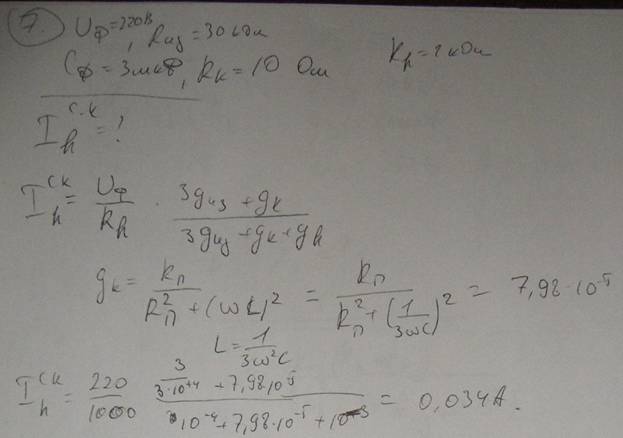 7. Uф=220В, Rиз=30 кОм
Cф=3мкФ, Rк=10 Ом Rh=1кОм
I_h^с.к=?
I_h^ск = Uф/Rh · (3gиз+gк)/(3gиз+gк+gh)
gк = Rп/(Rп²+(ωL)²) = Rп/(Rп²+(1/3ωC)²) = 7,98·10⁻⁵
L=1/3ω²C
I_h^ск = 220/1000 · (3/3·10⁺⁴ + 7,98·10⁻⁵)/(10⁻⁴+7,98·10⁻⁵+10⁻³) = 0,034А.